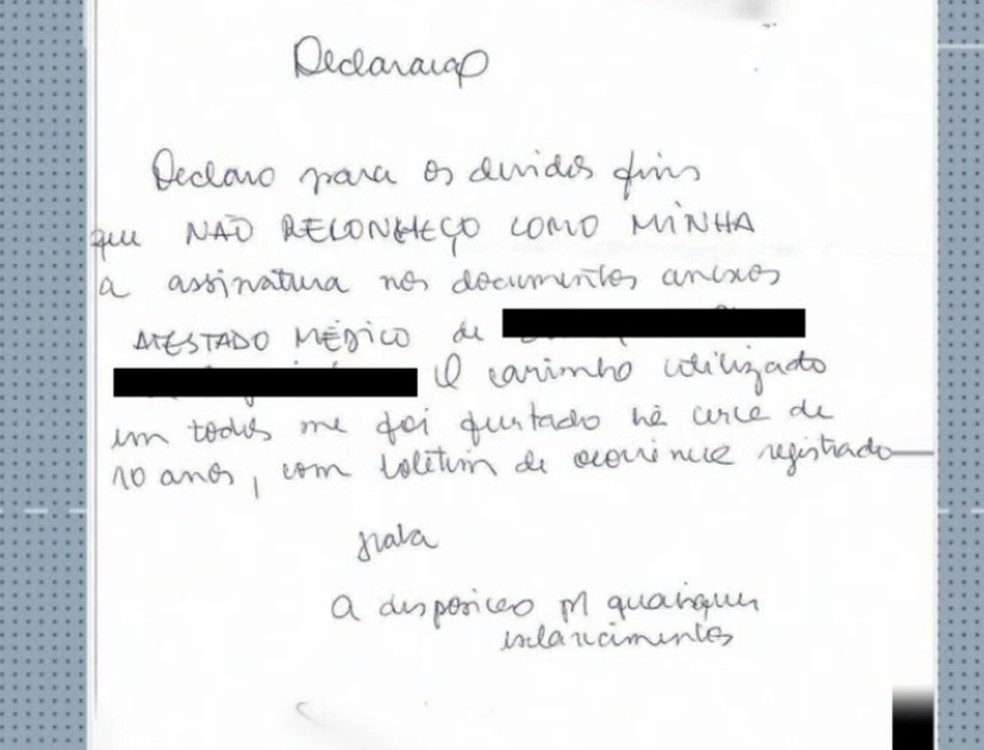 Declaração
Declaro para os devidos fins
que NÃO RECONHEÇO COMO MINHA
a assinatura nos documentos anexos
ATESTADO MÉDICO de
O carimbo utilizado
em todos me foi furtado há cerca de
10 anos, com boletim de ocorrência registrado
grata
a disposição p/ quaisquer
esclarecimentos